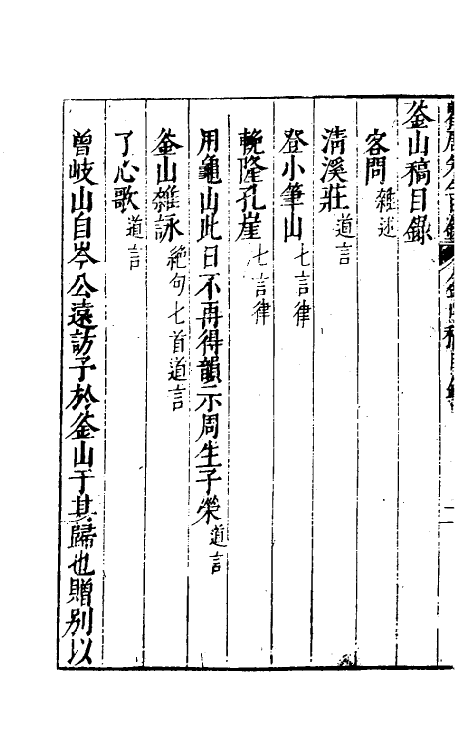 釜山稿目錄
客問 雜述
清溪莊 道言
登小筆山 七言律
輓隆孔崖 七言律
用龜山此日不再得韻示周生子榮 道言
釜山雜詠 絕句七首道言
了心歌 道言
曾岐山自岑公遠訪予於釜山于其歸也贈別以